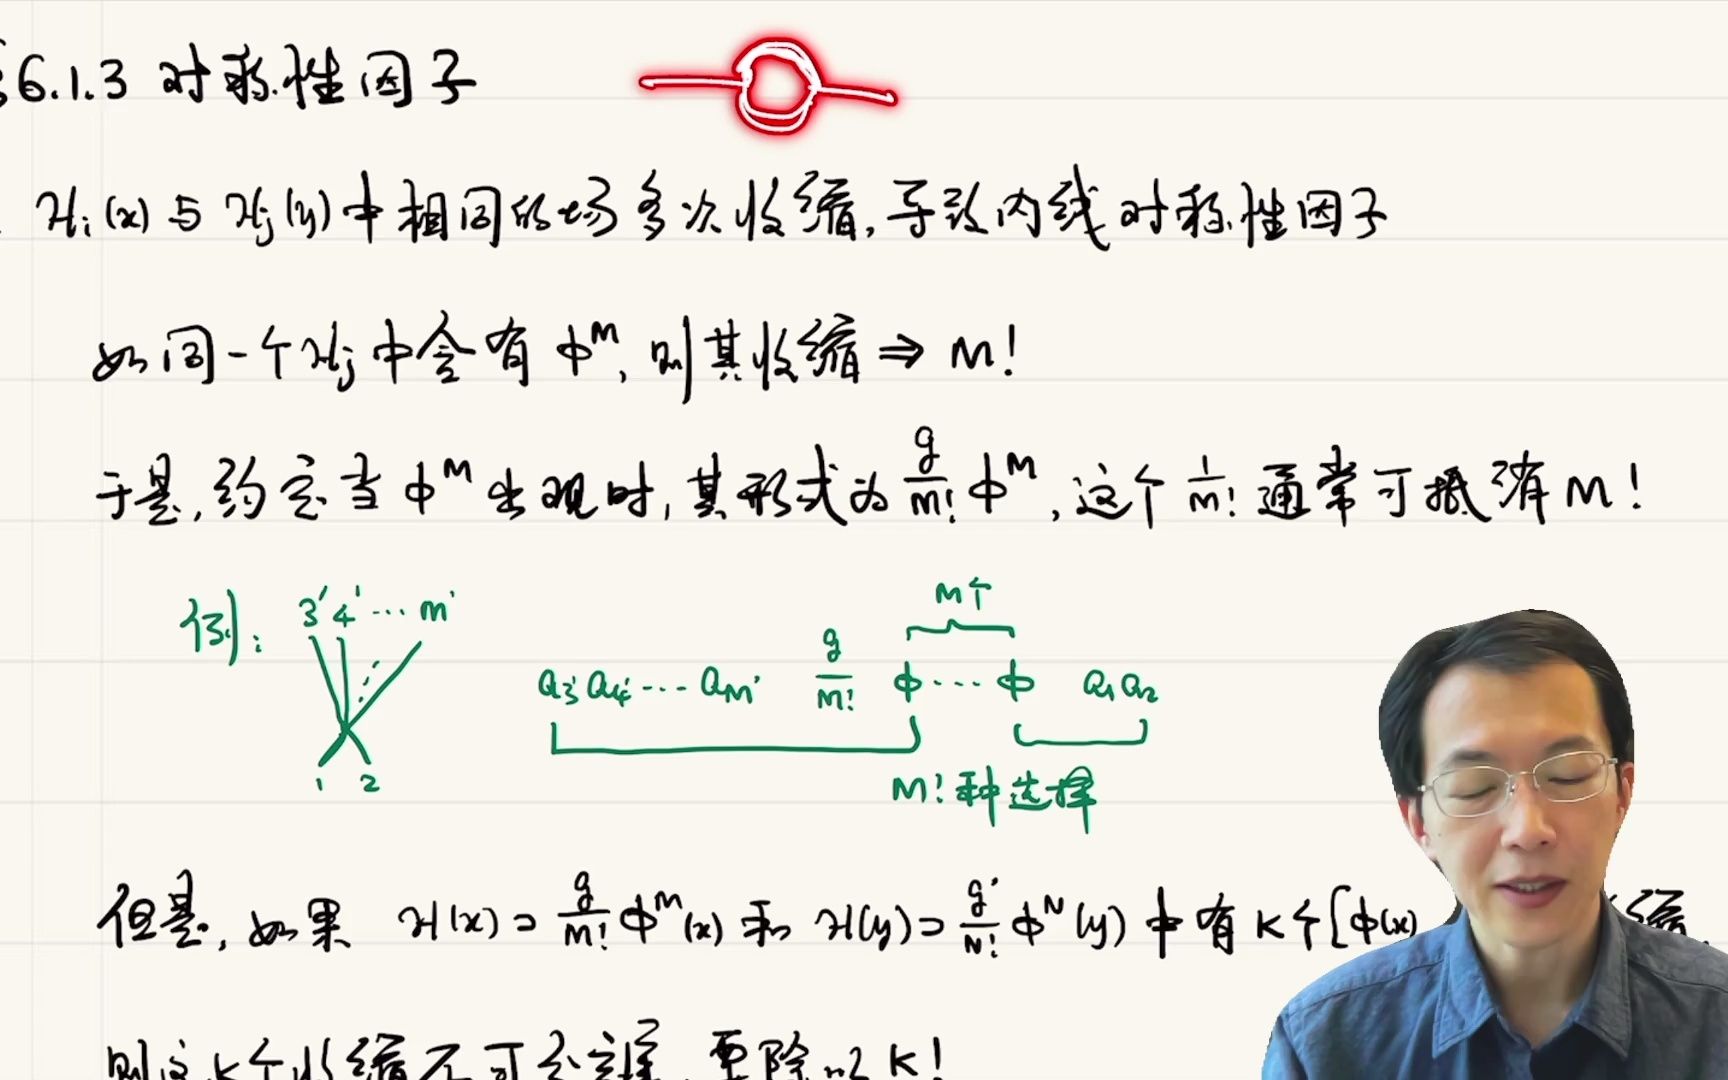 §6.1.3 对称性因子
ℋᵢ(x) 与 ℋⱼ(y) 中相同的场多次收缩, 导致内线对称性因子
如同一个ℋⱼ中含有 φᴹ, 则其收缩 ⇒ M!
于是, 约定当 φᴹ 出现时, 其形式为 g/M! φᴹ, 这个 1/M! 通常可抵消 M!
M个
例: 3' 4' ... M'
a₃' a₄' ... a_M' g/M! φ ... φ a₁ a₂
1 2
M! 种选择
但是, 如果 ℋ(x) ⊃ g/M! φᴹ(x) 和 ℋ(y) ⊃ g'/N! φᴺ(y) 中有 K个[φ(x)
则这K个收缩不可分辨, 要除以 K!